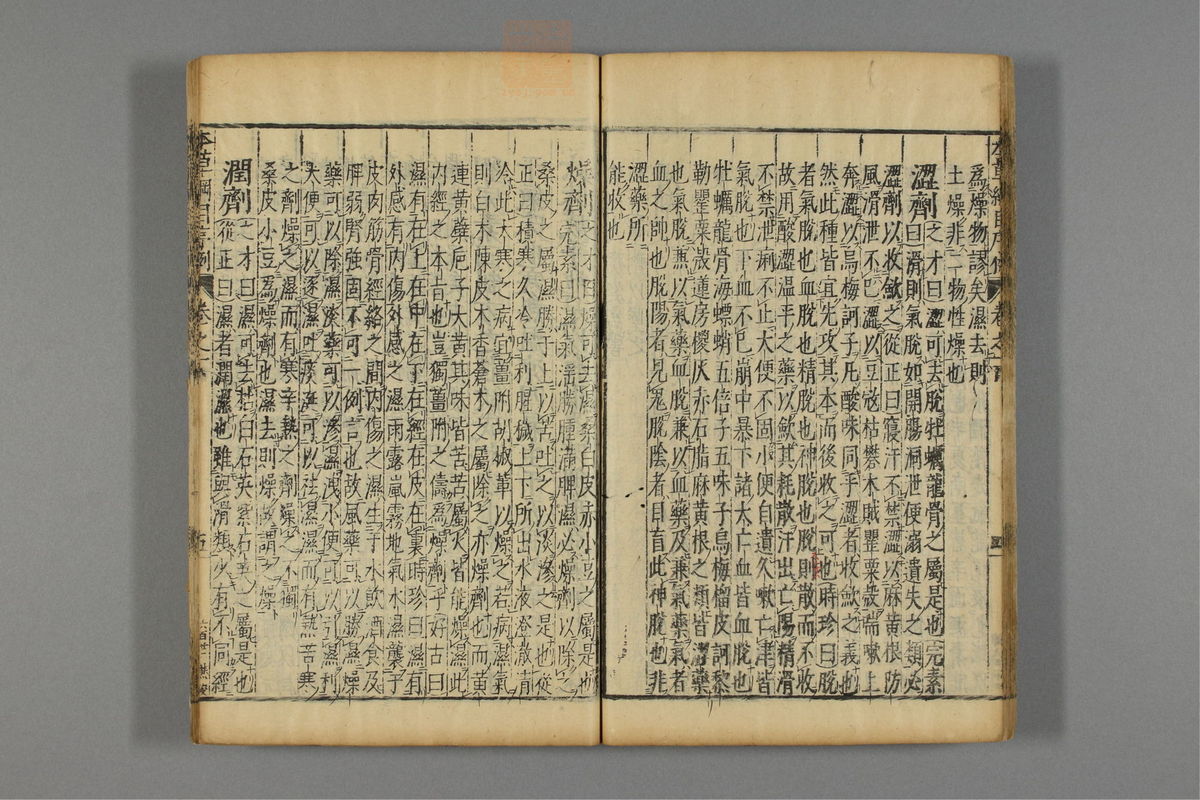 為燥物謬矣濕去則
土燥非二物性燥也
澀劑之才曰澀可去脫牡蠣龍骨之屬是也完素
曰滑則氣脫如開腸洞泄便溺遺失之類必
澀劑以收斂之從正曰寢汗不禁澀以麻黃根防
風滑泄不已澀以豆蔻枯礬木賊罌粟殼喘嗽上
奔澀以烏梅訶子凡酸味同乎澀者收斂之義也
然此種皆宜先攻其本而後收之可也時珍曰脫
者氣脫也血脫也精脫也神脫也脫則散而不收
故用酸澀溫平之藥以斂其耗散汗出亡陽精滑
不禁泄痢不止大便不固小便自遺久嗽亡津皆
氣脫也下血不已崩中暴下諸大亡血皆血脫也
牡蠣龍骨海螵蛸五倍子五味子烏梅榴皮訶黎
勒罌粟殼蓮房椶灰赤石脂麻黃根之類皆澀藥
也氣脫兼以氣藥血脫兼以血藥及兼氣藥氣者
血之帥也脫陽者見鬼脫陰者目盲此神脫也非
澀藥所
能收也
燥劑之才曰燥可去濕桑白皮赤小豆之屬是也
完素曰濕氣淫勝腫滿脾濕必燥劑以除之
桑皮之屬濕勝于上以苦吐之以淡滲之是也從
正曰積寒久冷吐利腥穢上下所出水液澄澈清
冷此大寒之病宜薑附胡椒輩以燥之若病濕氣
則白朮陳皮木香蒼朮之屬除之亦燥劑也而黃
連黃蘗巵子大黃其味皆苦苦屬火皆能燥濕此
內經之本旨也豈獨薑附之儔為燥劑乎好古曰
濕有在上在中在下在經在皮在裏時珍曰濕有
外感有內傷外感之濕雨露嵐霧地氣水濕襲于
皮肉筋骨經絡之間內傷之濕生于水飲酒食及
脾弱腎強固不可一例言也故風藥可以勝濕燥
藥可以除濕淡藥可以滲濕洩小便可以引濕利
大便可以逐濕吐痰涎可以祛濕濕而有熱苦寒
之劑燥之濕而有寒辛熱之劑燥之不獨
桑皮小豆為燥劑也濕去則燥故謂之燥
潤劑之才曰濕可去枯白石英紫石英之屬是也
從正曰濕者潤濕也雖與滑類少有不同經